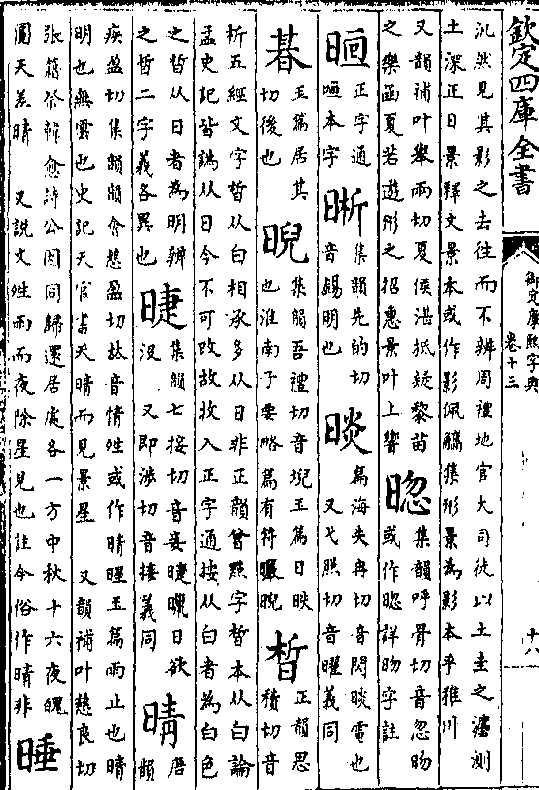 欽定四庫全書
御定康熙字典
卷十三
十八
汎然見其影之去往而不辨周禮地官大司徒以土圭之灋測
土深正日景釋文景本或作影佩觿集形景為影本乎稚川
又韻補叶舉兩切夏侯湛抵疑黎苗
之樂函夏若遊形之招惠景叶上響
⿰日忽
集韻呼骨切音忽昒
或作⿰日忽詳昒字註
正字通
本字
晰
集韻先的切
音錫明也
晱
篇海失冉切音閃晱電也
又弋照切音曜義同
⿱其日
玉篇居其
切後也
晲
集韻吾禮切音堄玉篇日昳
也淮南子要略篇有符㬤晲
晳
正韻思
積切音
析五經文字晳从白相承多从日非正韻曾點字晳本从白論
孟史記皆譌从日今不可改故收入正字通按从白者為白色
之晳从日者為明辨
之晢二字義各異也
⿰日疌
集韻七接切音妾⿰日疌曬日欲
没 又即涉切音接義同
晴
唐
韻
疾盈切集韻韻會慈盈切𠀤音情姓或作晴暒玉篇雨止也晴
明也無雲也史記天官書天晴而見景星 又韻補叶慈良切
張籍祭韓愈詩公因同歸還居處各一方中秋十六夜魄
圓天差晴 又說文姓雨而夜除星見也註今俗作晴非
⿰日垂